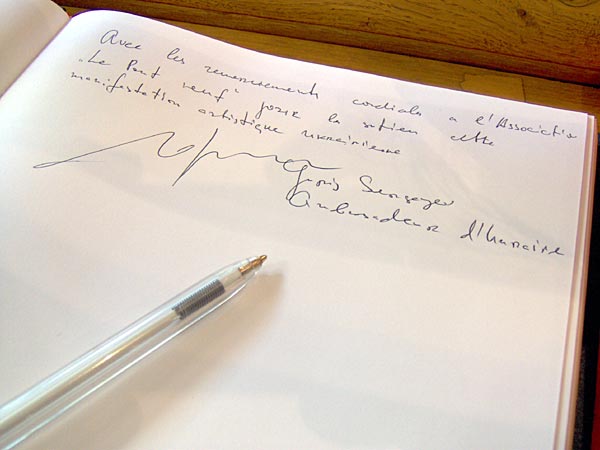 Avec les remerciements cordials a l'Association
"Le Pont neuf" pour le soutien cette
manifestation artistique ukrainienne
Ambasadeur d'Ukraine